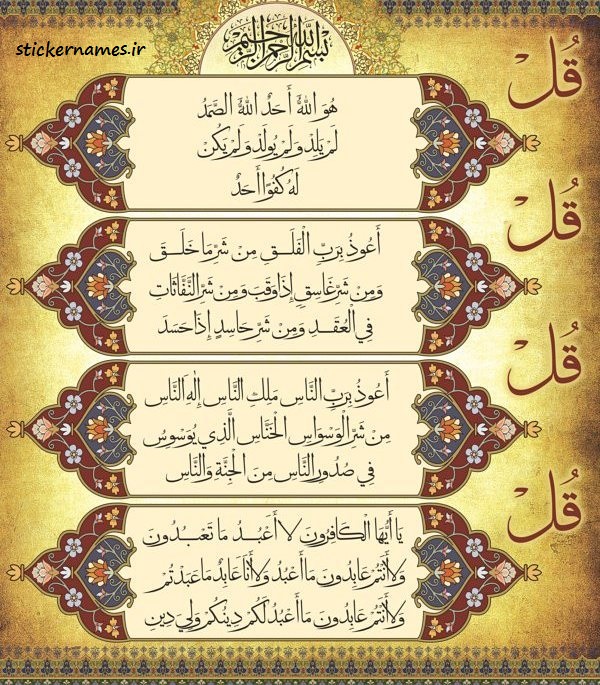 stickernames.ir
بسم الله الرحمن الرحيم
قُل
هُوَ اللهُ أَحَدٌ اللهُ الصَّمَدُ
لَمْ يَلِدْ وَلَمْ يُولَدْ وَلَمْ يَكُنْ
لَهُ كُفُوًا أَحَدٌ
قُل
أَعُوذُ بِرَبِّ الْفَلَقِ مِنْ شَرِّ مَا خَلَقَ
وَمِنْ شَرِّ غَاسِقٍ إِذَا وَقَبَ وَمِنْ شَرِّ النَّفَّاثَاتِ
فِي الْعُقَدِ وَمِنْ شَرِّ حَاسِدٍ إِذَا حَسَدَ
قُل
أَعُوذُ بِرَبِّ النَّاسِ مَلِكِ النَّاسِ إِلَهِ النَّاسِ
مِنْ شَرِّ الْوَسْوَاسِ الْخَنَّاسِ الَّذِي يُوَسْوِسُ
فِي صُدُورِ النَّاسِ مِنَ الْجِنَّةِ وَالنَّاسِ
قُل
يَا أَيُّهَا الْكَافِرُونَ لَا أَعْبُدُ مَا تَعْبُدُونَ
وَلَا أَنْتُمْ عَابِدُونَ مَا أَعْبُدُ وَلَا أَنَا عَابِدٌ مَا عَبَدْتُمْ
وَلَا أَنْتُمْ عَابِدُونَ مَا أَعْبُدُ لَكُمْ دِينُكُمْ وَلِيَ دِينِ